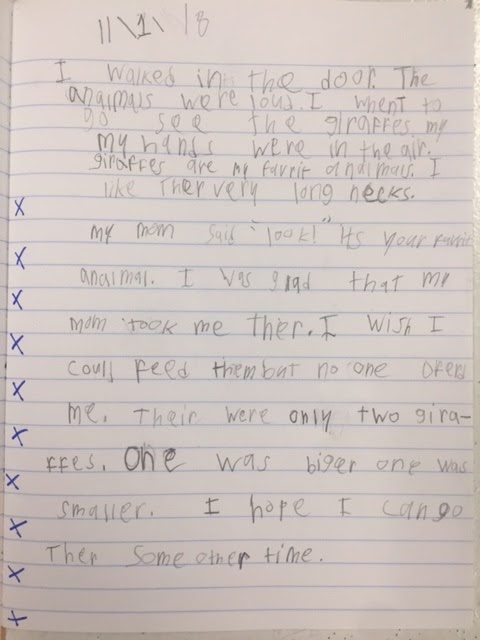 11\1\18
I walked in the door. The
anaimals were loud. I whent to
go see the giraffes. my
my hands were in the air.
giraffes are my favrit anaimals. I
like Ther very long necks.
my mom said "look!" Its your favrit
anaimal. I was grad that my
mom took me Ther. I wish I
could feed them but no one Oferd
me. Their were only two gira-
ffes. One was biger one was
smaller. I hope I can go
Ther some other time.
x
x
x
x
x
x
x
x
x
x